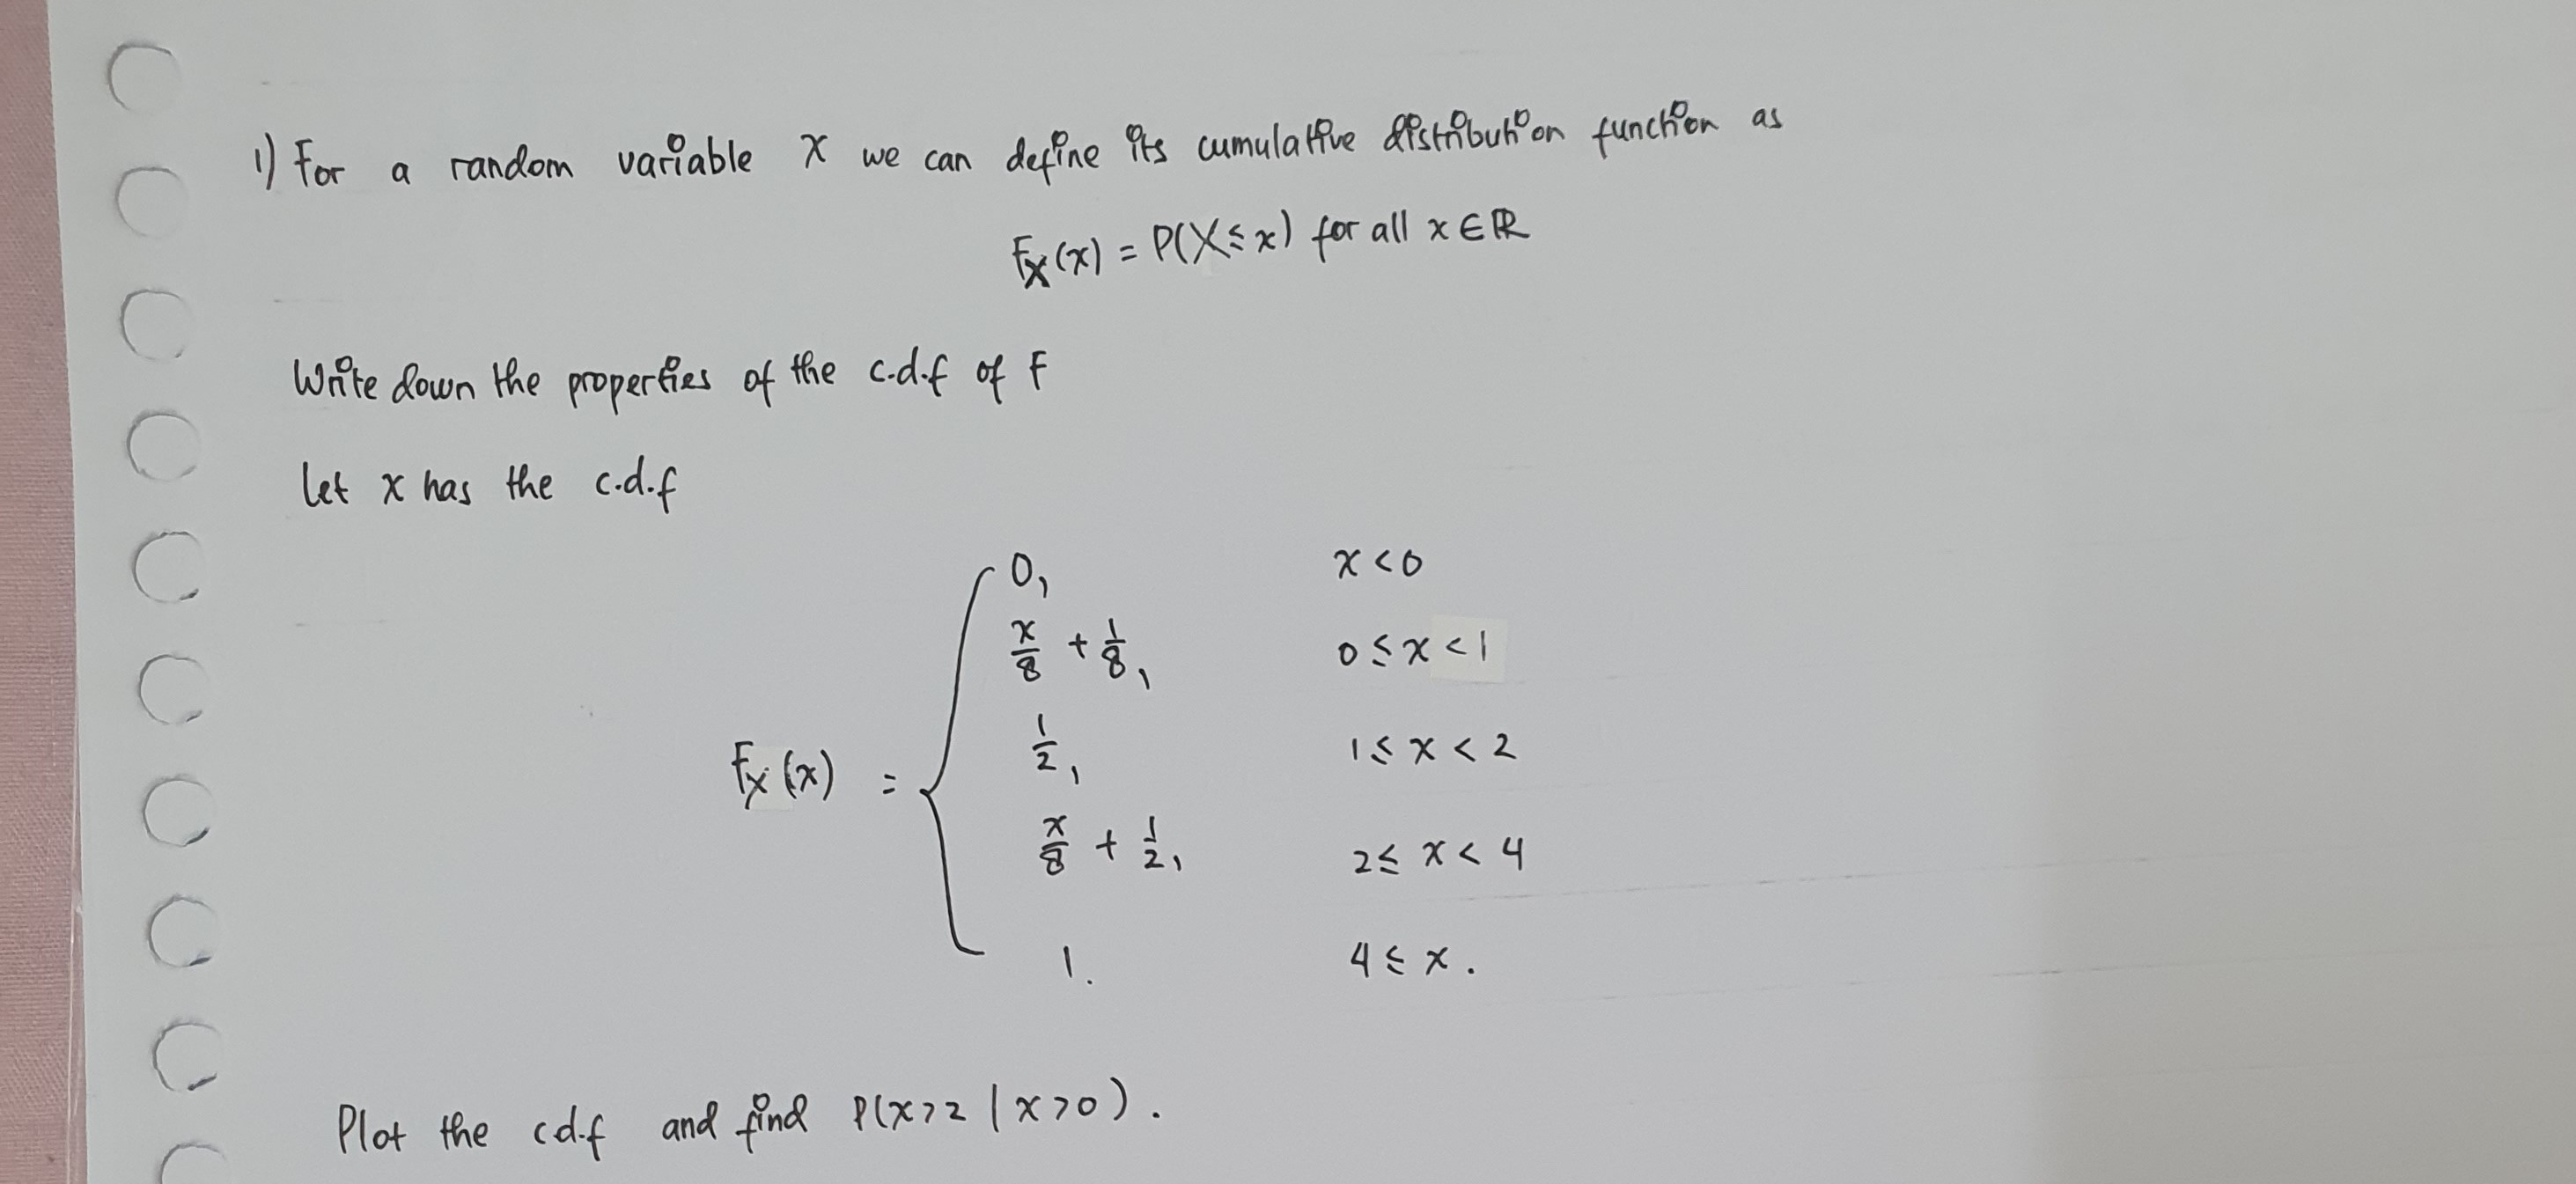 1) For a random variable X we can define its cumulative distribution function as
Fx(x) = P(X≤x) for all x∈ℝ
Write down the properties of the c.d.f of F
Let x has the c.d.f
0, x<0
x/8 + 1/8, 0≤x<1
1/2, 1≤x<2
Fx(x) = {
x/8 + 1/2, 2≤x<4
1. 4≤x.
Plot the cd.f and find P(x>2 | x>0).